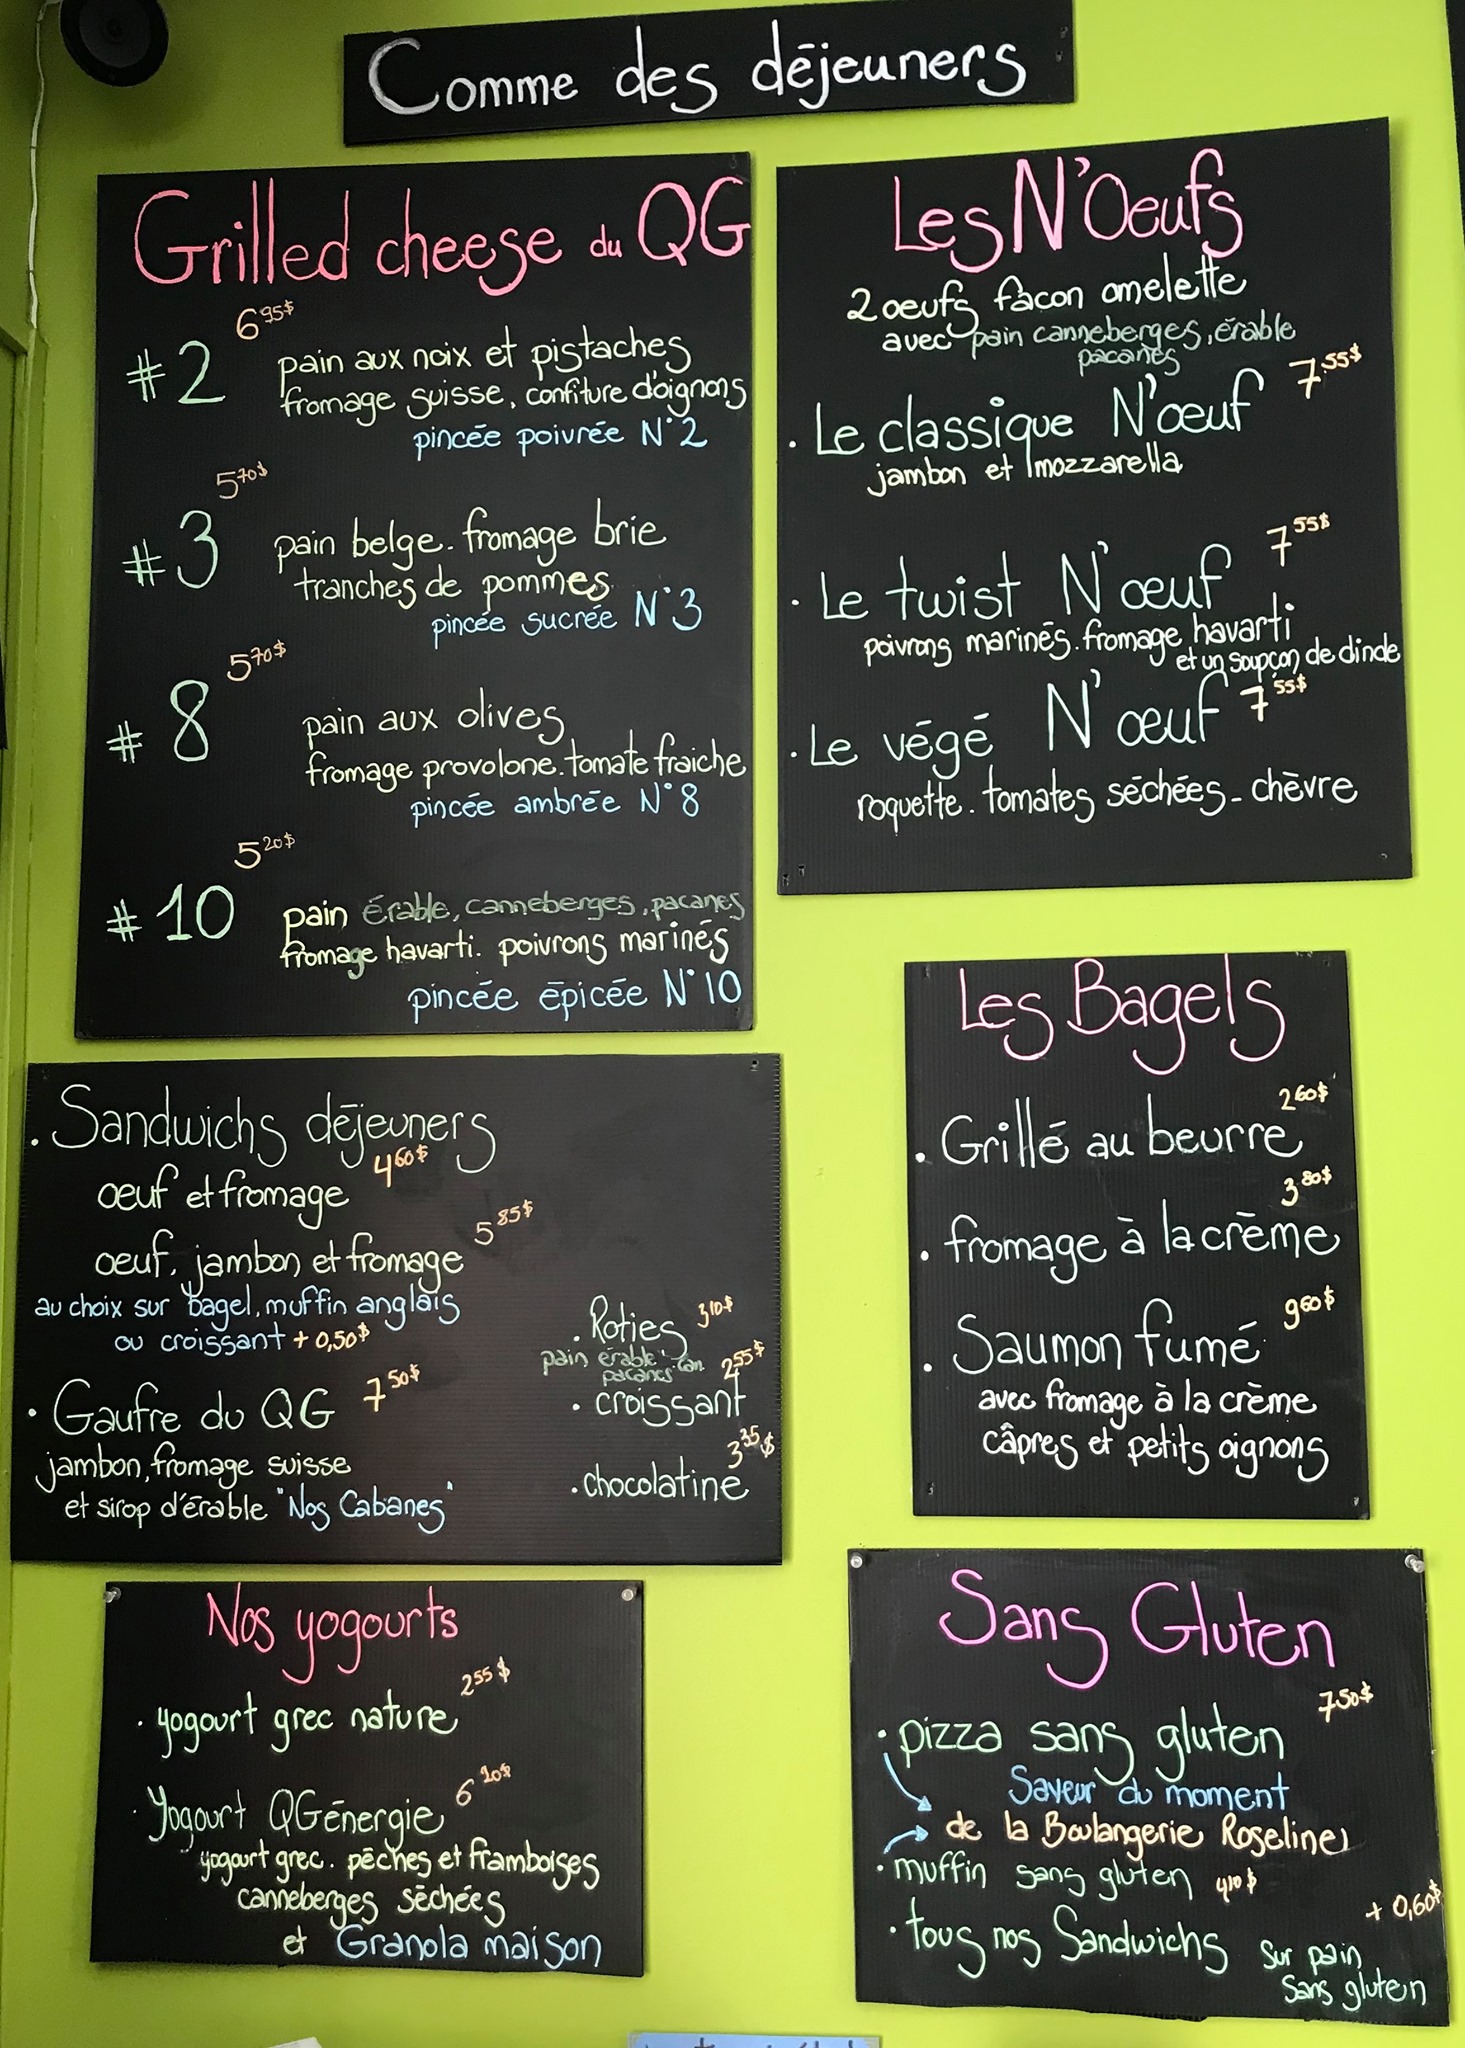 Comme des déjeuners
Grilled cheese du QG
#2 6 95$
pain aux noix et pistaches
fromage suisse, confiture d'oignons
pincée poivrée N°2
#3 5 70$
pain belge. fromage brie
tranches de pommes
pincée sucrée N°3
#8 5 70$
pain aux olives
fromage provolone. tomate fraiche
pincée ambrée N°8
#10 5 20$
pain érable, canneberges, pacanes
fromage havarti. poivrons marinés
pincée épicée N°10
Les N'Oeufs
2 oeufs façon omelette
avec pain canneberges, érable
pacanes
. Le classique N'œuf 7 55$
jambon et mozzarella
. Le twist N'œuf 7 55$
poivrons marinés. fromage havarti
et un soupçon de dinde
. Le végé N'œuf 7 55$
roquette. tomates séchées - chèvre
. Sandwichs déjeuners
oeuf et fromage 4 60$
oeuf, jambon et fromage 5 85$
au choix sur bagel, muffin anglais
ou croissant + 0,50$
. Gaufre du QG 7 50$
jambon, fromage suisse
et sirop d'érable "Nos Cabanes"
. Roties 3 10$
pain érable
pacanes. can.
. croissant 2 55$
. chocolatine 3 35$
Les Bagels
. Grillé au beurre 2 60$
. fromage à la crème 3 80$
. Saumon fumé 9 60$
avec fromage à la crème
câpres et petits oignons
Nos yogourts
. yogourt grec nature 2 55$
. Yogourt QGénergie 6 20$
yogourt grec. pêches et framboises
canneberges séchées
et Granola maison
Sans Gluten
. pizza sans gluten 7 50$
Saveur du moment
de la Boulangerie Roseline
. muffin sans gluten 4 10$
. tous nos Sandwichs + 0,60$
sur pain
sans gluten